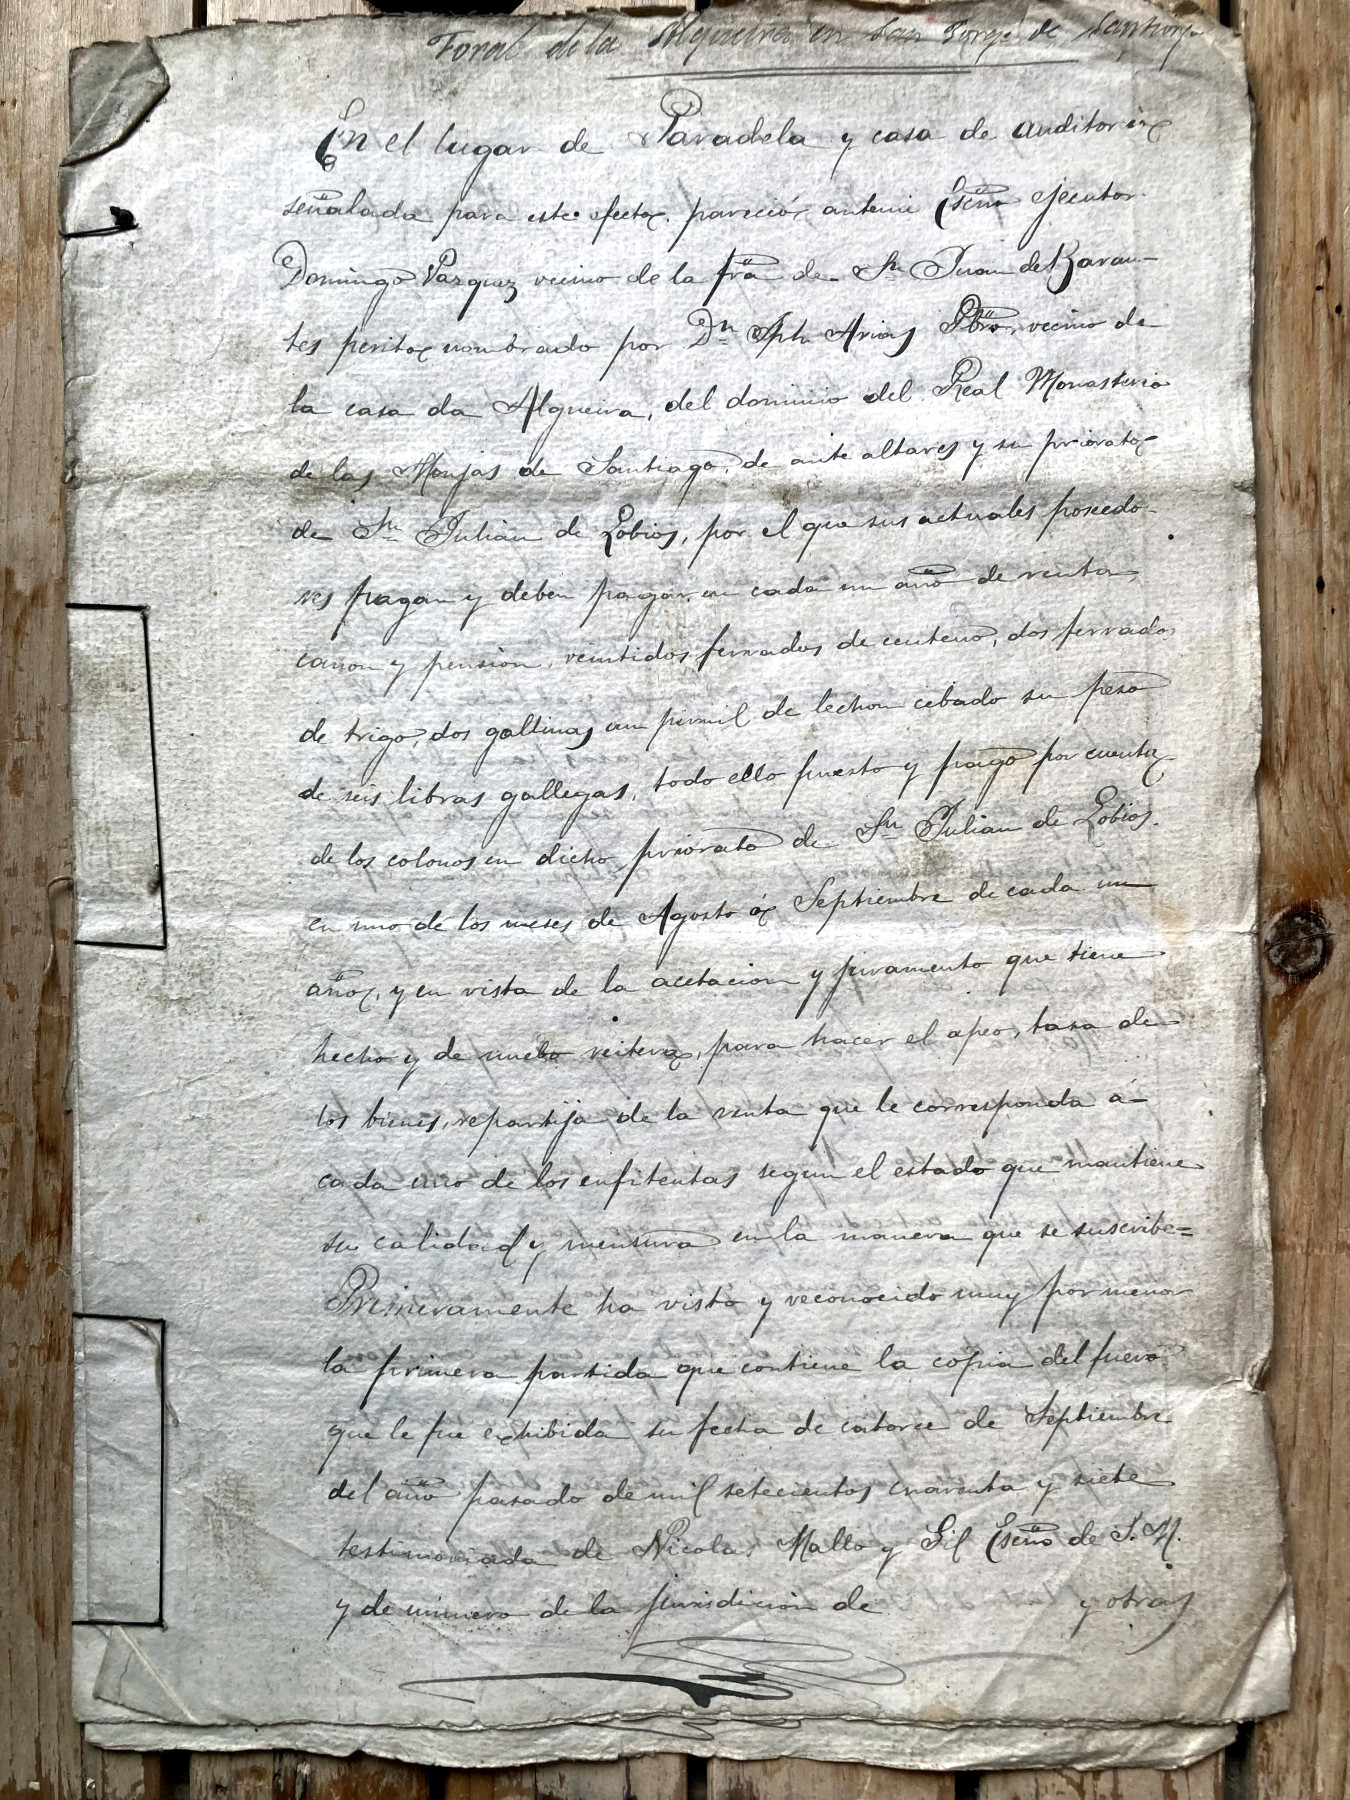 Foral de la Algueira en San Jorge de Santiorjo
En el lugar de Paradela y casa de auditorio
señalada para este efecto, pareció antemi Esño Jecutor
Domingo Vazquez vecino de la fra de Sn Juan de Baran-
tes perito nombrado por Dn Jph Arias Pbro vecino de
la casa da Algueira, del dominio del Real Monasterio
de las Monjas de Santiago, de ante altares y su priorato
de Sn Julian de Lobios, por el que sus actuales poseedo-
res pagan y deben pagar en cada un año de renta
canon y pensión, veintidos ferrados de centeno, dos ferrados
de trigo, dos gallinas un pirnil de lechon cebado su peso
de seis libras gallegas, todo ello puesto y pago por cuenta
de los colonos en dicho priorato de Sn Julian de Lobios.
en uno de los meses de Agosto ó Septiembre de cada un
año, y en vista de la acetación y juramento que tiene
hecho y de nuebo reitera, para hacer el apeo, tasa de
los bienes, repartija de la renta que le corresponda á
cada uno de los enfitentas segun el estado que mantiene
su calidad y mensura en la manera que se suscribe=
Primeramente ha visto y reconocido muy por menor
la primera partida que contiene la copia del fuero
que le fue exhibida su fecha de catorce de Septiembre
del año pasado de mil setecientos cuarenta y siete
testimoniada de Nicolas Mallo y Gil Esño de S. M.
y de número de la jurisdición de y otras